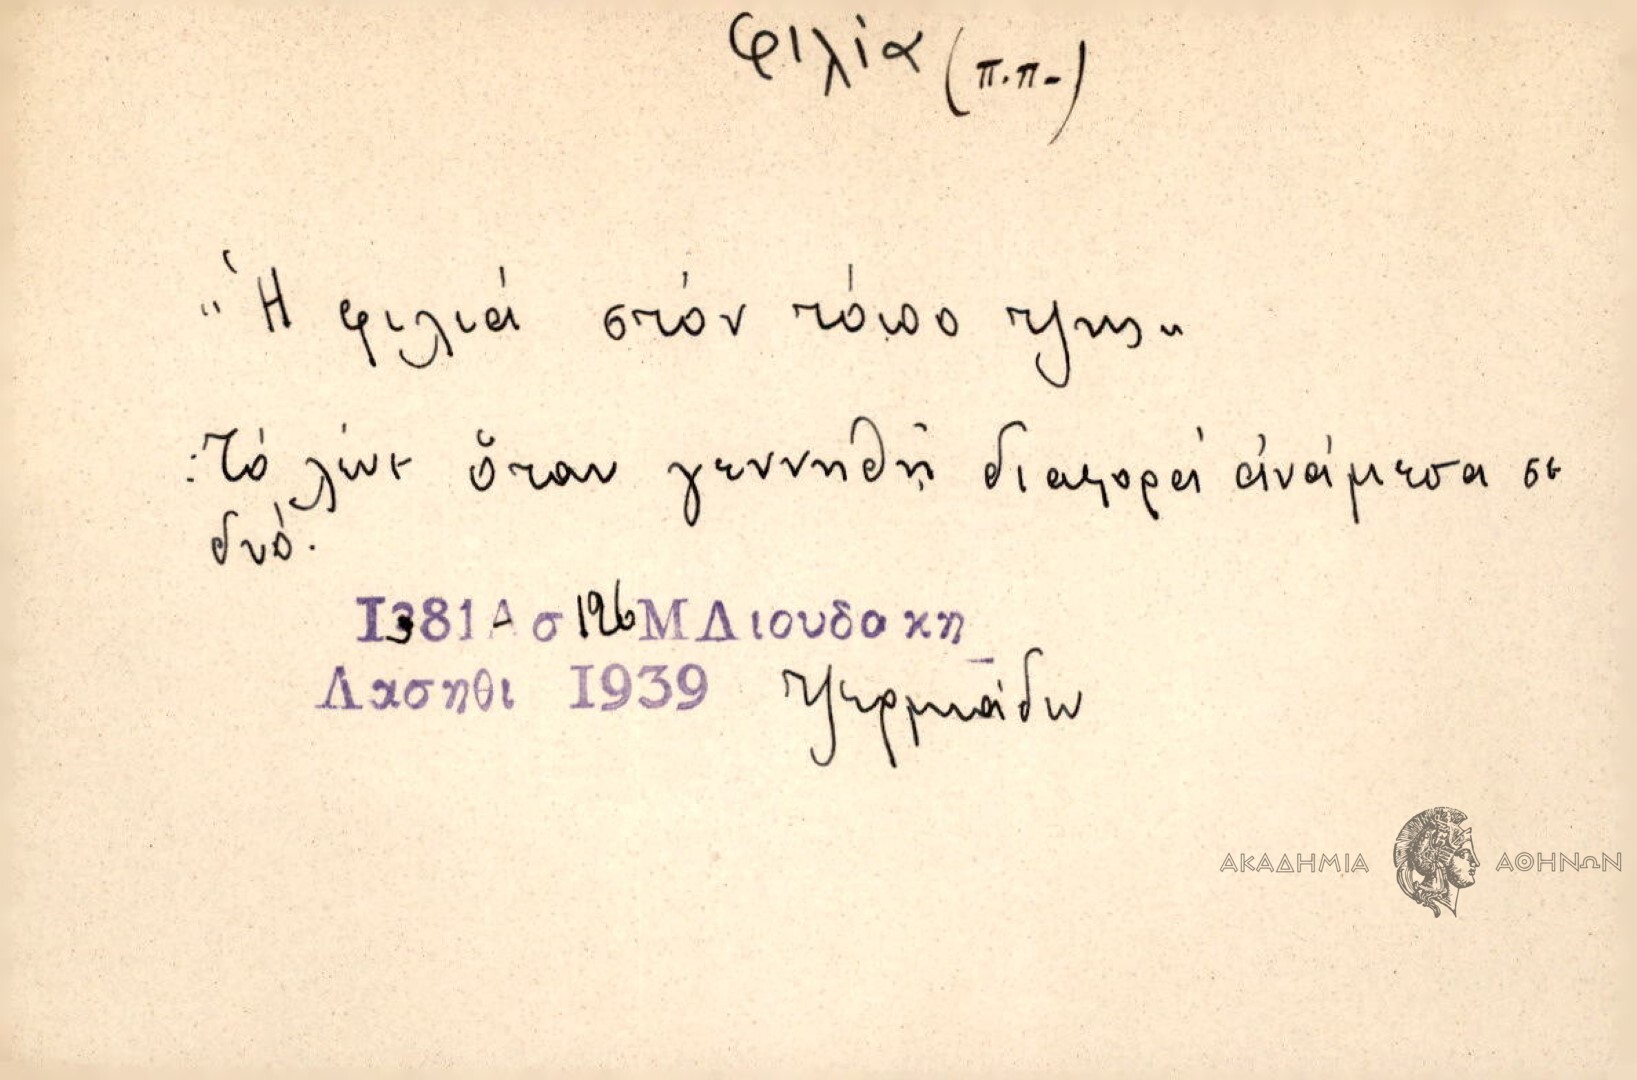 φιλία (π.π.)
"Ἡ φιλιά στόν τόπο τζης"
:Τό λένε ὅταν γεννηθῇ διαφορά ἀνάμεσα σε
δυό.
1381 Α σ 126 Μ Λιουδακη
Λασηθι 1939 Τζερμιάδω
ΑΚΑΔΗΜΙΑ ΑΘΗΝΩΝ